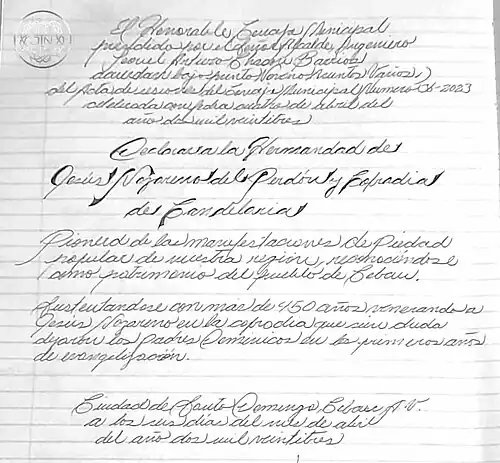 El Honorable Concejo Municipal
presidido por el Señor Alcalde Ingeniero
Arturo Chacón Barrios
Noveno Puntos Varios,
del Acta de sesiones del Concejo Municipal Número 06-2023
celebrada con fecha cuatro de abril del
año dos mil veintitres
Declarar a la Hermandad de
Jesús Nazareno del Perdón y Cofradía
de Candelaria
Pionera de las manifestaciones de Piedad
popular de nuestra región, reconociéndose
como patrimonio del pueblo de Coban.
Sustentandose con más de 450 años venerando a
Jesús Nazareno en la cofradía que sin duda
dejaron los Padres Dominicos en los primeros años
de evangelización.
Ciudad de Santo Domingo Coban A.V.
a los seis días del mes de abril
del año dos mil veintitres